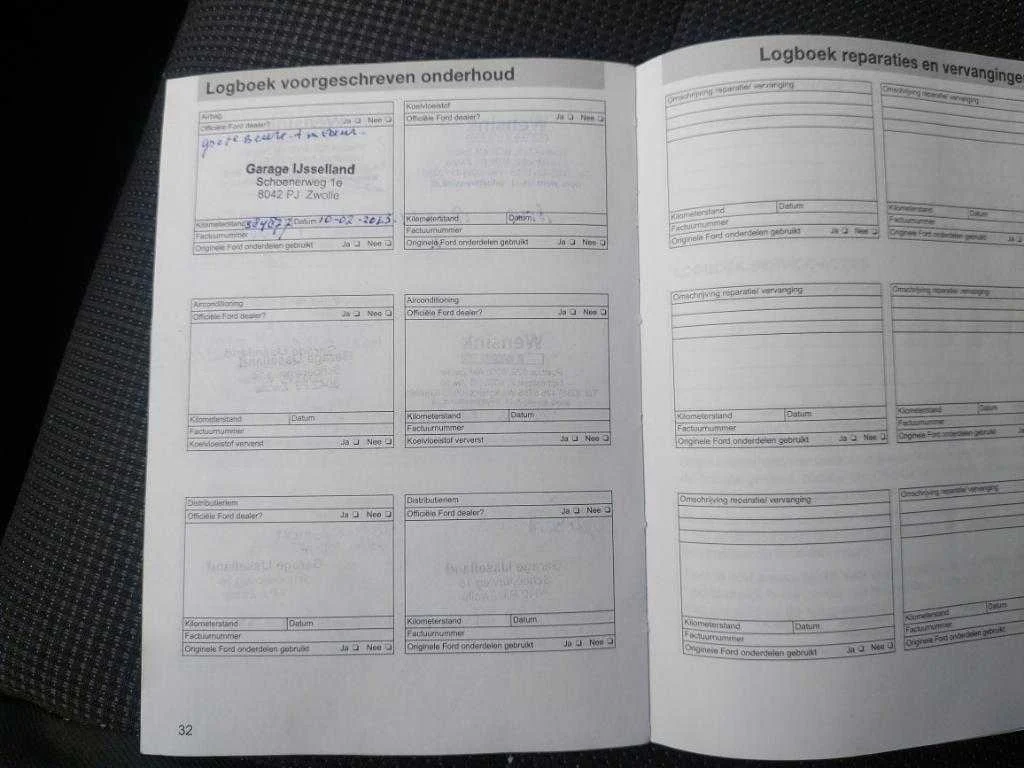 Logboek voorgeschreven onderhoud
Airbag
Officiële Ford dealer? Ja ❑ Nee ❑
grote Beurt +
Garage IJsselland
Schoenerweg 1e
8042 PJ Zwolle
Kilometerstand Datum 10-02-2023
Factuurnummer
Originele Ford onderdelen gebruikt Ja ❑ Nee ❑
Koelvloeistof
Officiële Ford dealer? Ja ❑ Nee ❑
Kilometerstand Datum
Factuurnummer
Originele Ford onderdelen gebruikt Ja ❑ Nee ❑
Airconditioning
Officiële Ford dealer? Ja ❑ Nee ❑
Kilometerstand Datum
Factuurnummer
Koelvloeistof ververst Ja ❑ Nee ❑
Airconditioning
Officiële Ford dealer? Ja ❑ Nee ❑
Kilometerstand Datum
Factuurnummer
Koelvloeistof ververst Ja ❑ Nee ❑
Distributieriem
Officiële Ford dealer? Ja ❑ Nee ❑
Kilometerstand Datum
Factuurnummer
Originele Ford onderdelen gebruikt Ja ❑ Nee ❑
Distributieriem
Officiële Ford dealer? Ja ❑ Nee ❑
Kilometerstand Datum
Factuurnummer
Originele Ford onderdelen gebruikt Ja ❑ Nee ❑
32
Logboek reparaties en vervanginge
Omschrijving reparatie/ vervanging
Kilometerstand Datum
Factuurnummer
Originele Ford onderdelen gebruikt Ja ❑ Nee ❑
Omschrijving reparatie/ vervanging
Kilometerstand Datum
Factuurnummer
Originele Ford onderdelen gebruikt Ja ❑
Omschrijving reparatie/ vervanging
Kilometerstand Datum
Factuurnummer
Originele Ford onderdelen gebruikt Ja ❑ Nee ❑
Omschrijving reparatie/ vervanging
Kilometerstand Datum
Factuurnummer
Originele Ford onderdelen gebruikt
Omschrijving reparatie/ vervanging
Kilometerstand Datum
Factuurnummer
Originele Ford onderdelen gebruikt Ja ❑ Nee ❑
Omschrijving reparatie/ vervanging
Kilometerstand Datum
Factuurnummer
Originele Ford onderdelen gebruikt